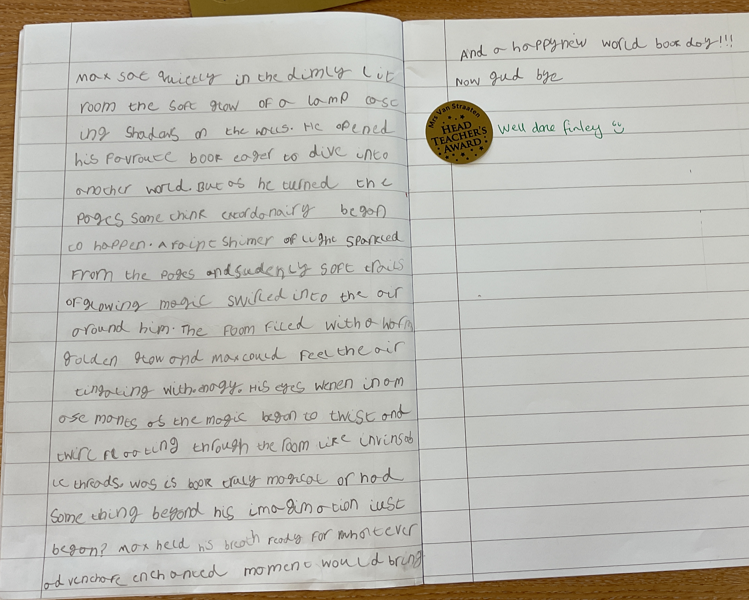 Max sat quietly in the dimly lit
room the soft glow of a lamp casc
ing shadows on the walls. He opened
his favroute book eager to dive into
another world. But as he turned the
Pages some think exordonairy began
to happen. A faint shimer of light sparkled
From the pages and sudenly soft trails
of glowing magic swirled into the air
around him. The room filed with a warm
golden glow and max could feel the air
tingaling with. His eyes in am
ase ments as the magic began to twist and
twirl floating through the room like invinsab
le threads. was is book truly magical or had
Some thing beyond his imagination just
began? Max held his breath ready for whatever
ad venchore enchanced moment would bring
And a happy new world book day!!!
Now gud bye
Mrs Van Straaten
HEAD
TEACHER'S
AWARD
Well done finley